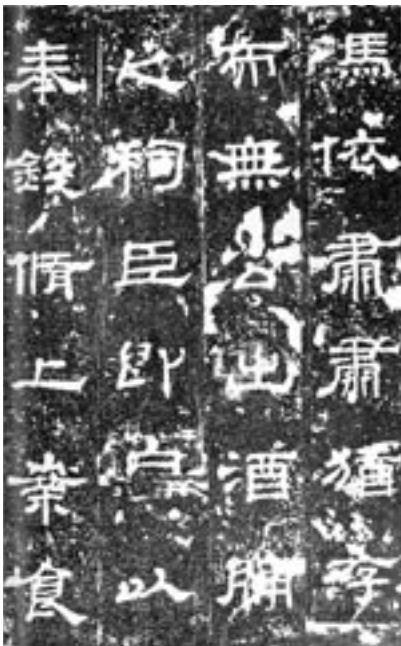 馮依肅肅猶存
而無公出酒脯
之祠臣即自以
奉錢脩上案食